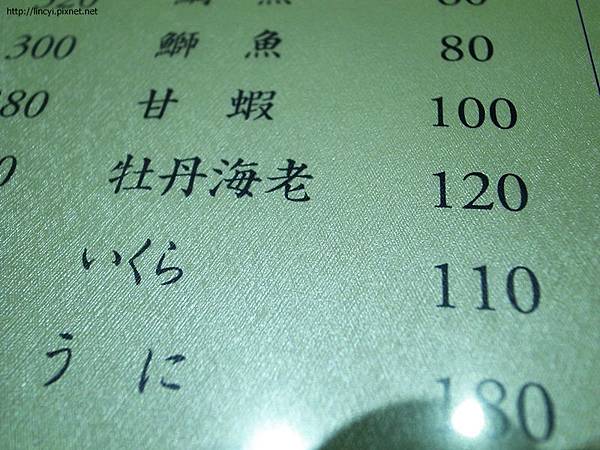 http://lincyi.pixnet.net
300 鰤魚 80
甘蝦 100
牡丹海老 120
いくら 110
うに 180